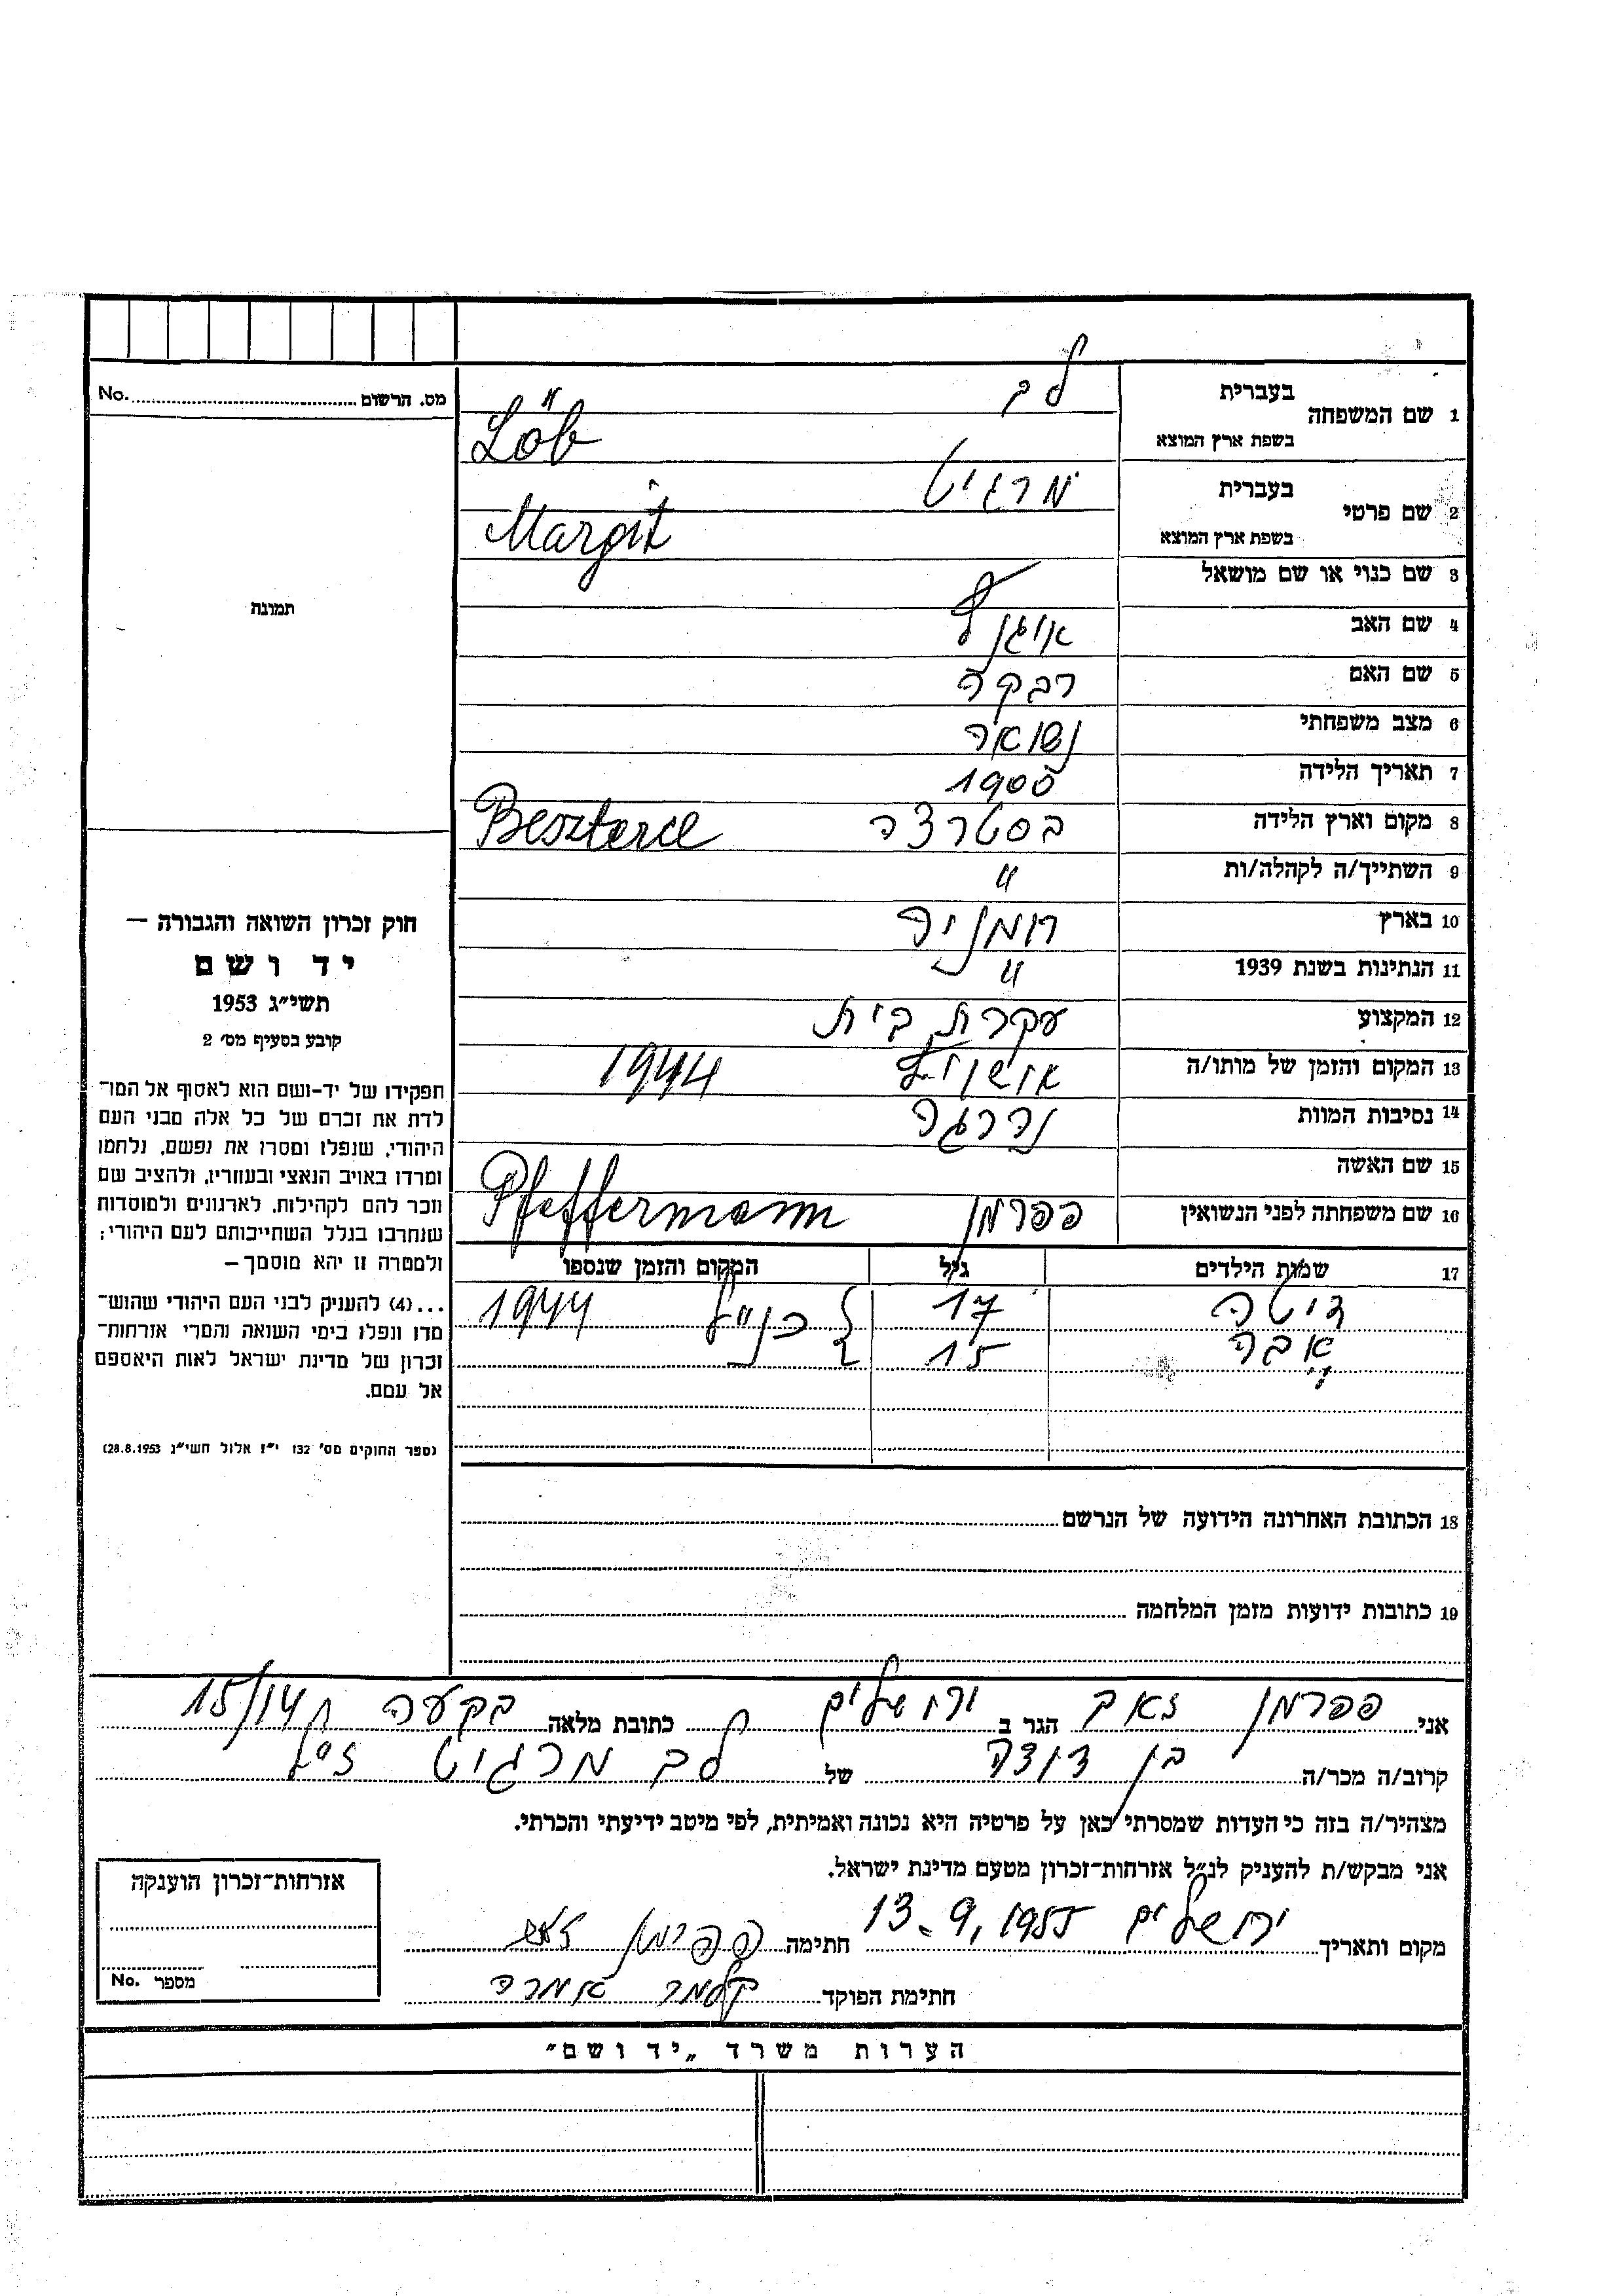 בעברית
1 שם המשפחה לב
בשפת ארץ המוצא Löb
בעברית
2 שם פרטי מרגיט
בשפת ארץ המוצא Margit
3 שם כנוי או שם מושאל
4 שם האב
5 שם האם רבקה
6 מצב משפחתי נשואה
7 תאריך הלידה 1900
8 מקום וארץ הלידה בסטרצה Beszterce
9 השתייך/ה לקהלה/ות "
10 בארץ רומניה
11 הנתינות בשנת 1939 "
12 המקצוע עקרת בית
13 המקום והזמן של מותו/ה אושויץ 1944
14 נסיבות המוות נהרגה
15 שם האשה
16 שם משפחתה לפני הנשואין פפרמן Pfeffermann
17 שמות הילדים גיל המקום והזמן שנספו
דיטה 17 כנ"ל 1944
אבה 15
18 הכתובת האחרונה הידועה של הנרשם
19 כתובות ידועות מזמן המלחמה
מס. הרשום No.
תמונה
חוק זכרון השואה והגבורה –
יד ושם
תשי״ג 1953
קובע בסעיף מס׳ 2
תפקידו של יד-ושם הוא לאסוף אל המו־
לדת את זכרם של כל אלה מבני העם
היהודי, שנפלו ומסרו את נפשם, נלחמו
ומרדו באויב הנאצי ובעוזריו, ולהציב שם
וזכר להם לקהילות, לארגונים ולמוסדות
שנחרבו בגלל השתייכותם לעם היהודי;
ולמטרה זו יהא מוסמך –
...(4) להעניק לבני העם היהודי שהוש־
מדו ונפלו בימי השואה והמרי אזרחות־
זכרון של מדינת ישראל לאות היאספם
אל עמם.
(ספר החוקים מס׳ 132 י״ז אלול תשי״ג 28.8.1953)
אני פפרמן זאב הגר ב ירושלים כתובת מלאה בקעה 15/14
קרוב/ה מכר/ה בן דודה של לב מרגיט ז"ל
מצהיר/ה בזה כי העדות שמסרתי כאן על פרטיה היא נכונה ואמיתית, לפי מיטב ידיעתי והכרתי.
אני מבקש/ת להעניק לנ״ל אזרחות־זכרון מטעם מדינת ישראל.
מקום ותאריך ירושלים 13.9.1955 חתימה פפרמן זאב
חתימת הפוקד
אזרחות־זכרון הוענקה
מספר No.
הערות משרד „יד ושם״